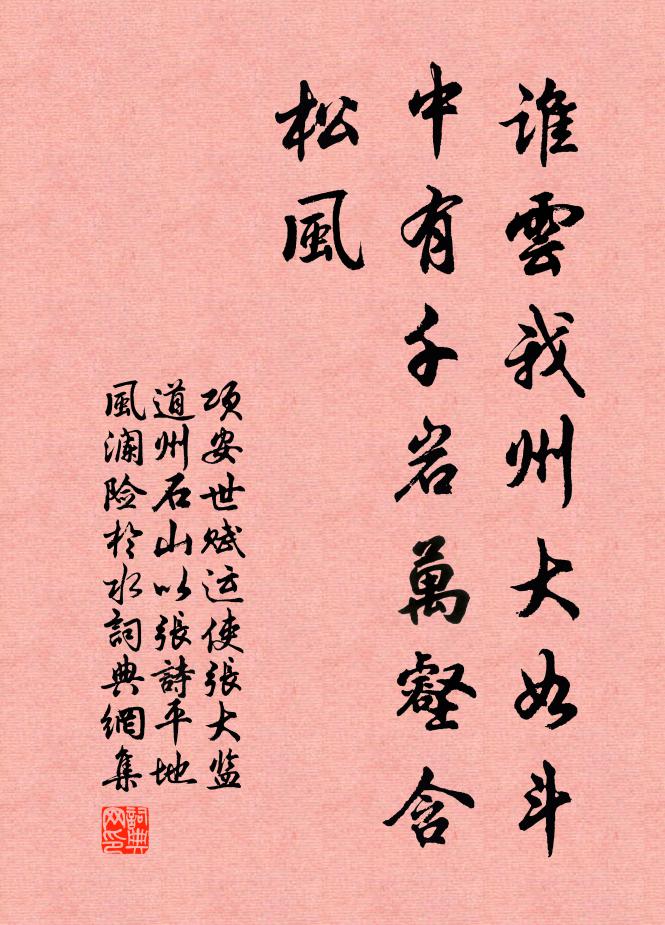 誰雲我州大如斗
中有千岩萬壑含
松風
项安世赋运使張大监
道州石山以張詩平地
風澜险於水詞典網集
詞典网印